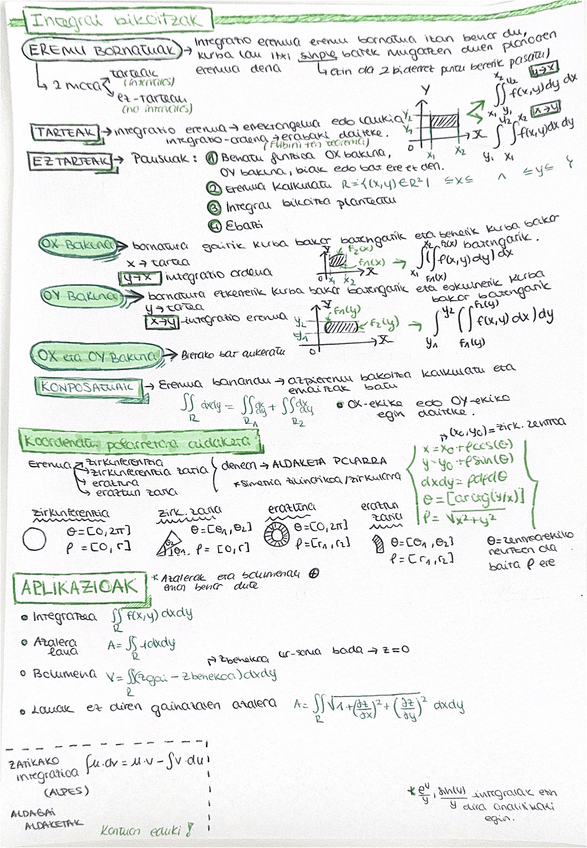 Integral bikoitzak
EREMU BORNATUAK → Integrazio eremua eremu bornatua izan behar du,
kurba lau itxi simple batek mugatzen duen planoaren
eremua dena
→ 2 mota
tarteak
(intervalos)
ez-tarteak
(no intervalos)
↳ ezin da 2 bider puntu beretik pasatu
TARTEAK → integrazio eremua → errektangelua edo laukia
integrazio-ordena → erabaki daiteke.
(Fubiniren teorema)
Y
y₂
y₁
x₁ x₂ X
y→x
∫∫ f(x,y) dy dx
x→y
∫∫ f(x,y) dx dy
EZ TARTEAK → Pausuak: ① Benatu funtzioa OX bakuna,
OY bakuna, biak edo bat ere ez den.
② Eremua kalkulatu R={(x,y)∈R² | ≤x≤ ∧ ≤y≤ }
③ Integral bikoitza planteatu
④ Ebatzi
OX-Bakuna → bornatura goitik kurba bakar batengatik eta behetik kurba bakar
batengatik.
x → tartea
y→x integrazio ordena
F₂(x)
F₁(x)
∫(∫ f(x,y) dy) dx
OY Bakuna → bornatura ezkerretik kurba bakar batengatik eta eskuinetik kurba
bakar batengatik
y → tartea
x→y integrazio eremua
F₁(y)
F₂(y)
∫(∫ f(x,y) dx) dy
OX eta OY Bakuna → Bietako bat aukeratu
KONPOSATUAK → Eremua banandu → azpieremu bakoitza kalkulatu eta
emaitzak batu
∬ dxdy = ∬ dxdy + ∬ dxdy
R R₁ R₂
• OX-ekiko edo OY-ekiko
egin daiteke.
Koordenatu polarretara aldaketa
Eremua
zirkunferentzia
zirkunferentzia zatia
eraztuna
eraztun zatia
denean → ALDAKETA POLARRA
*simetria zilindrikoa/zirkularra
(x₀,y₀)=zirk. zentroa
x = x₀+ρcos(θ)
y = y₀+ρsin(θ)
dxdy = ρdρdθ
θ = [arctg(y/x)]
ρ = √x²+y²
zirkunferentzia
θ=[0,2π]
ρ=[0,r]
zirk. zatia
θ=[θ₁,θ₂]
ρ=[0,r]
eraztuna
θ=[0,2π]
ρ=[r₁,r₂]
eraztun
zatia
θ=[θ₁,θ₂]
ρ=[r₁,r₂]
θ=zentroarekiko
neurtzen da
baita ρ ere
APLIKAZIOAK
* Azalerak eta bolumenak ⊕
eman behar dute
• Integratzea ∬ f(x,y) dxdy
R
• Azalera
laua
A=∬ 1dxdy
R
zbehekoa ur-sorua bada → z=0
• Bolumena V=∬(zgoi − zbehekoa)dxdy
R
• Lauak ez diren gainazalen azalera A=∬√1+(∂z/∂x)²+(∂z/∂y)² dxdy
R
ZATIKAKO
integrazioa
(ALPES)
∫u·dv = u·v − ∫v·du
ALDAGAI
ALDAKETAK
Kontuan eduki!
* e^y/y, sin(y)/y integralak ezin
dira analitikoki
egin.